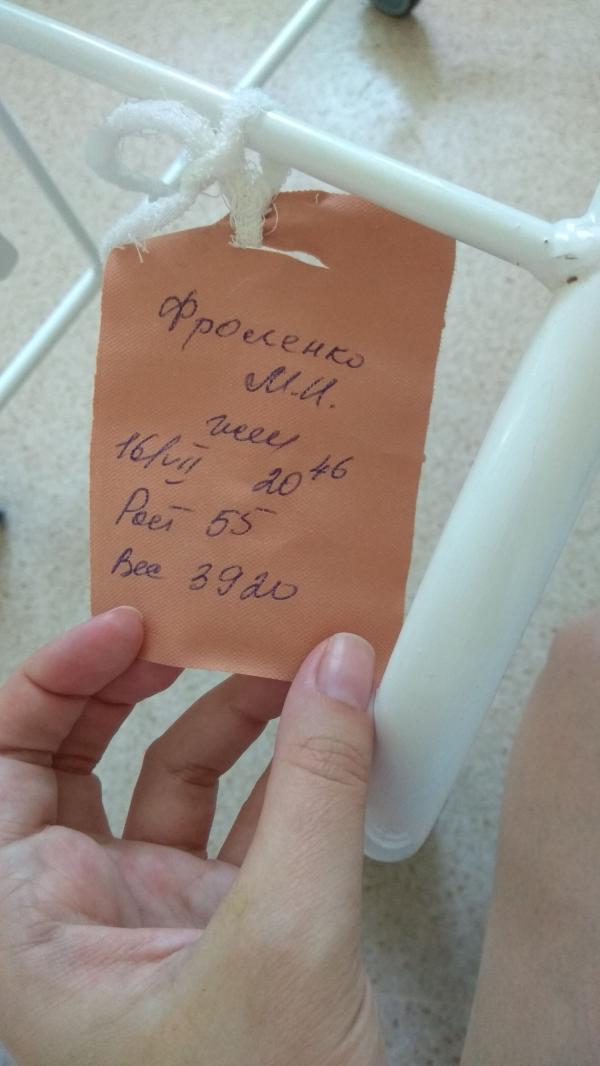 Фроленко
М.И.
жен
16/VII 20 46
Рост 55
Вес 3920